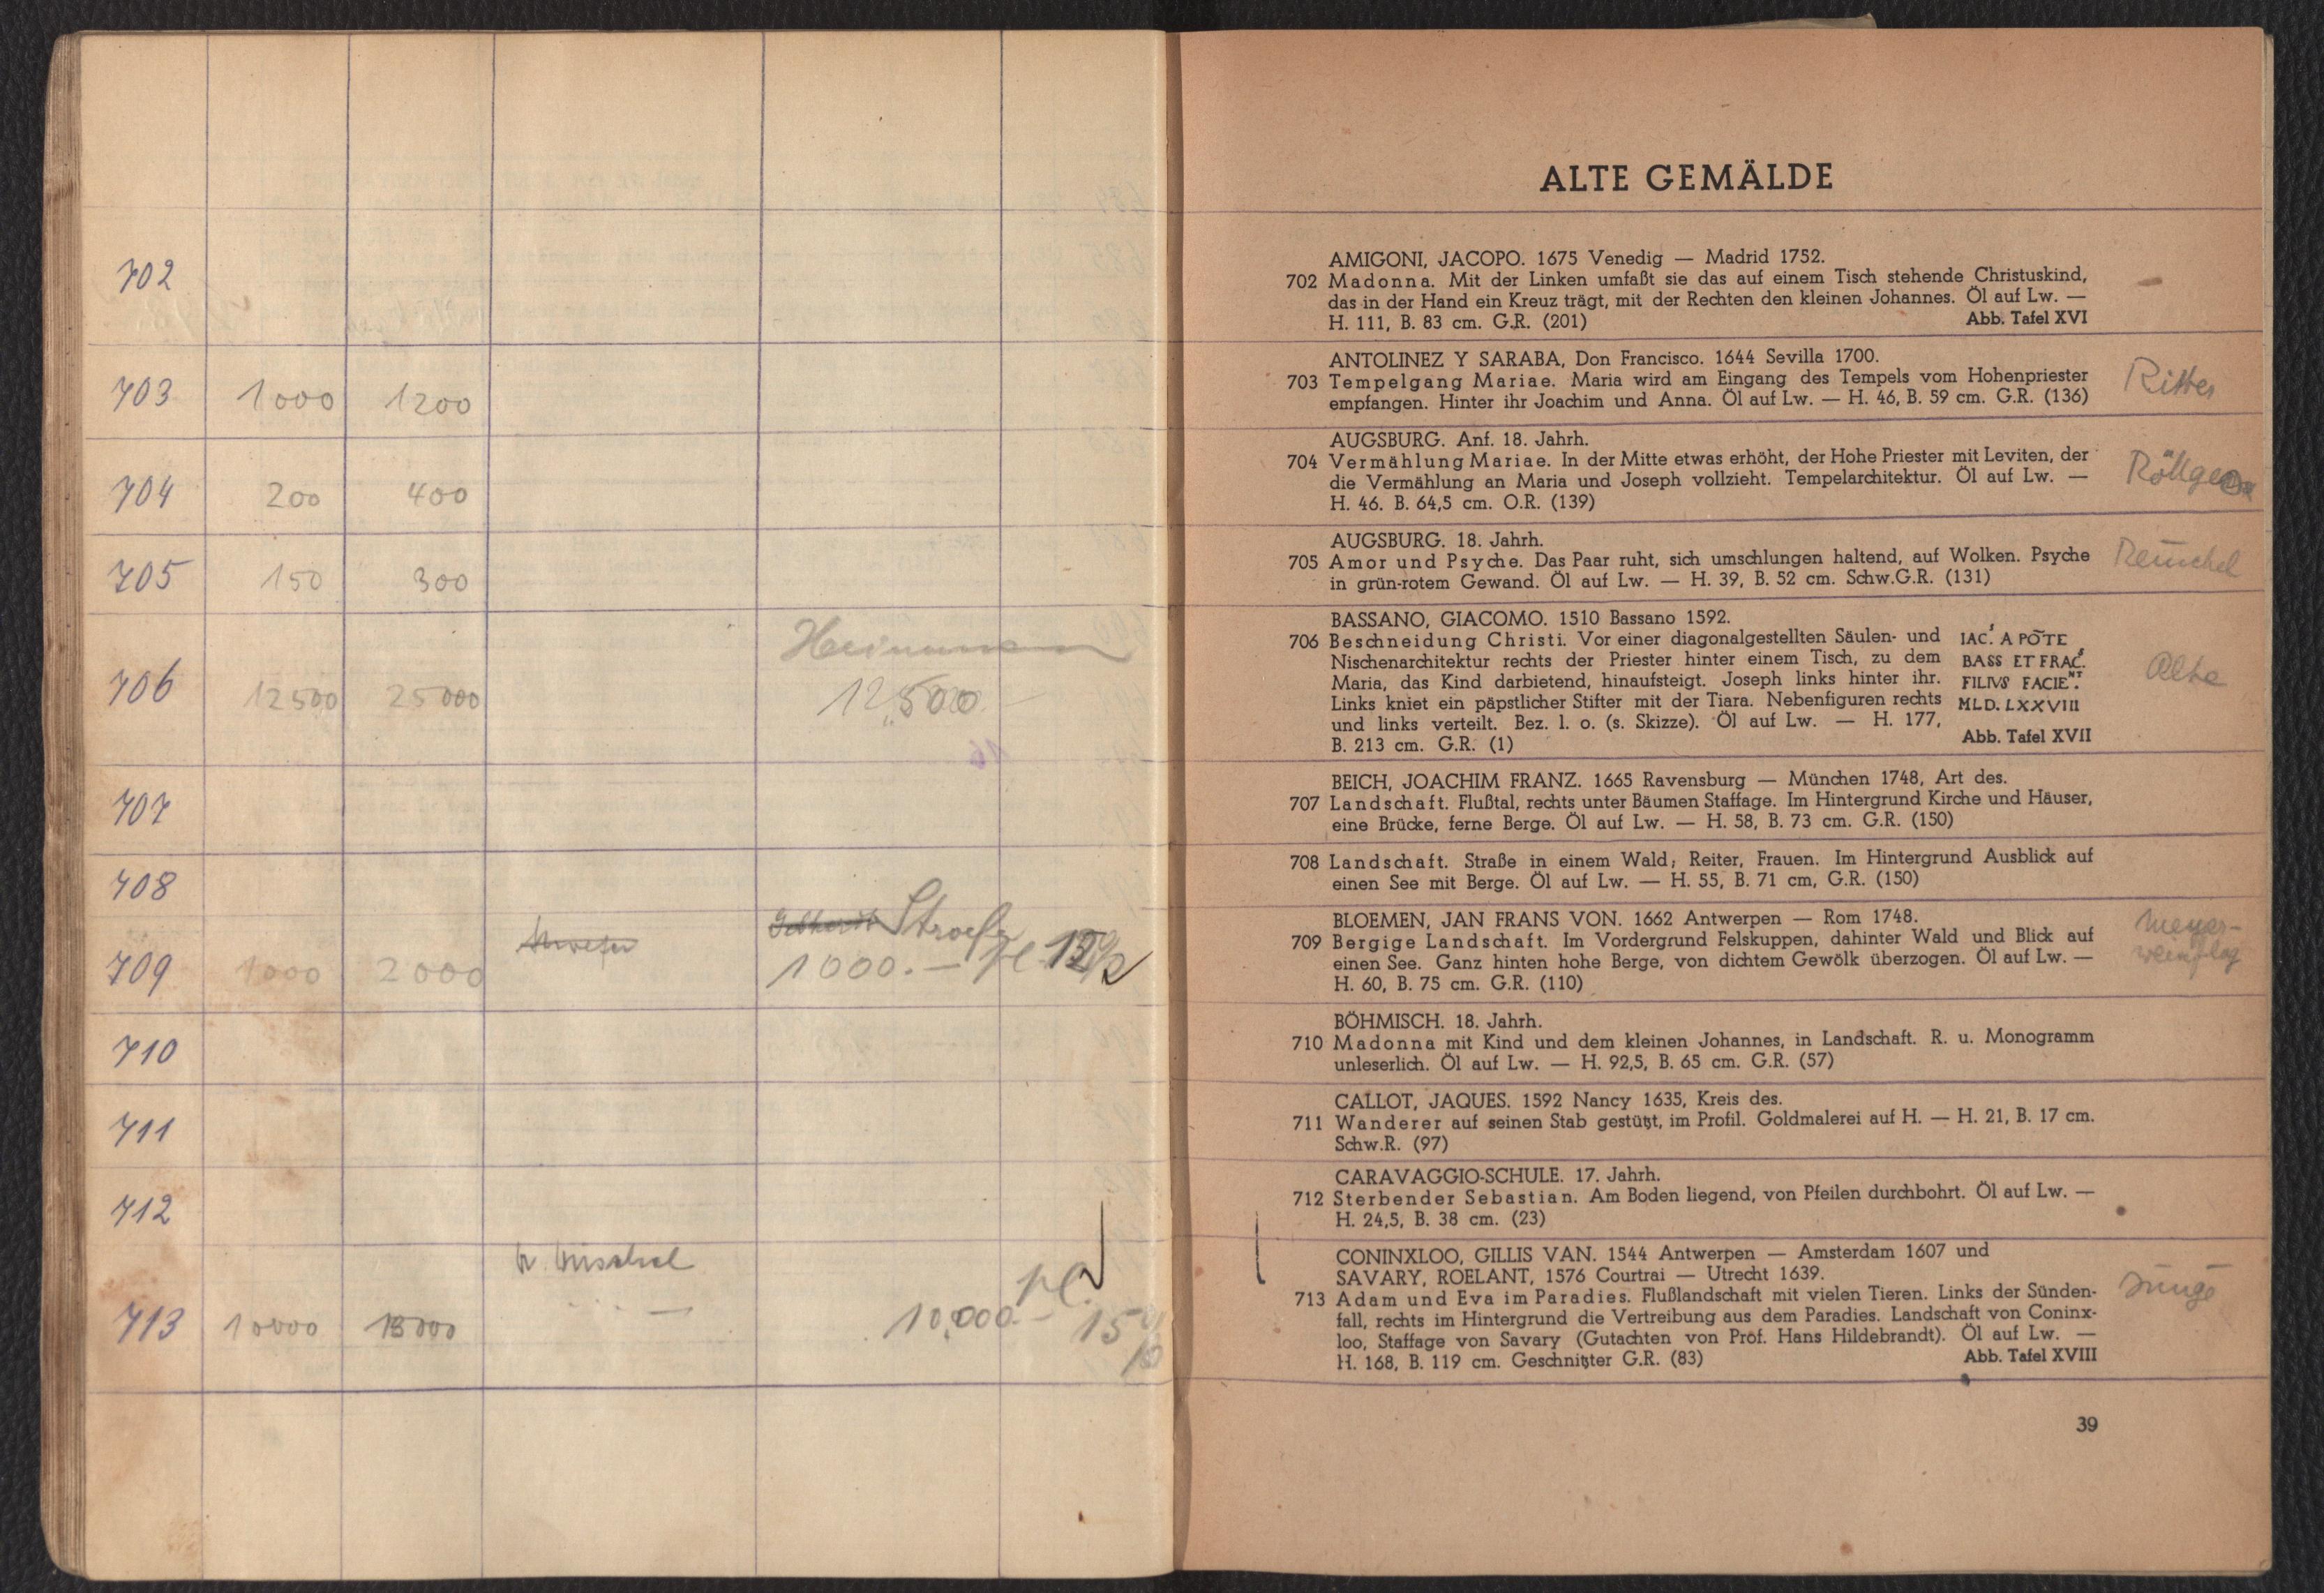 702
703 1000 1200
704 200 400
705 150 300
Heinemann
706 12500 25000 12500.—
707
708
Stroefer
709 1000 2000 1000.—
710
711
712
713 10000 13000 10,000.— 15
ALTE GEMÄLDE
AMIGONI, JACOPO. 1675 Venedig — Madrid 1752.
702 Madonna. Mit der Linken umfaßt sie das auf einem Tisch stehende Christuskind,
das in der Hand ein Kreuz trägt, mit der Rechten den kleinen Johannes. Öl auf Lw. —
H. 111, B. 83 cm. G.R. (201) Abb. Tafel XVI
ANTOLINEZ Y SARABA, Don Francisco. 1644 Sevilla 1700.
703 Tempelgang Mariae. Maria wird am Eingang des Tempels vom Hohenpriester Ritter
empfangen. Hinter ihr Joachim und Anna. Öl auf Lw. — H. 46, B. 59 cm. G.R. (136)
AUGSBURG. Anf. 18. Jahrh.
704 Vermählung Mariae. In der Mitte etwas erhöht, der Hohe Priester mit Leviten, der Röttgen
die Vermählung an Maria und Joseph vollzieht. Tempelarchitektur. Öl auf Lw. —
H. 46. B. 64,5 cm. O.R. (139)
AUGSBURG. 18. Jahrh.
705 Amor und Psyche. Das Paar ruht, sich umschlungen haltend, auf Wolken. Psyche
in grün-rotem Gewand. Öl auf Lw. — H. 39, B. 52 cm. Schw.G.R. (131)
BASSANO, GIACOMO. 1510 Bassano 1592.
706 Beschneidung Christi. Vor einer diagonalgestellten Säulen- und IAC. A PŌTE
Nischenarchitektur rechts der Priester hinter einem Tisch, zu dem BASS ET FRAC.
Maria, das Kind darbietend, hinaufsteigt. Joseph links hinter ihr. FILIVS FACIENT.
Links kniet ein päpstlicher Stifter mit der Tiara. Nebenfiguren rechts MLD.LXXVIII
und links verteilt. Bez. l. o. (s. Skizze). Öl auf Lw. — H. 177,
B. 213 cm. G.R. (1) Abb. Tafel XVII
BEICH, JOACHIM FRANZ. 1665 Ravensburg — München 1748, Art des.
707 Landschaft. Flußtal, rechts unter Bäumen Staffage. Im Hintergrund Kirche und Häuser,
eine Brücke, ferne Berge. Öl auf Lw. — H. 58, B. 73 cm. G.R. (150)
708 Landschaft. Straße in einem Wald; Reiter, Frauen. Im Hintergrund Ausblick auf
einen See mit Berge. Öl auf Lw. — H. 55, B. 71 cm, G.R. (150)
BLOEMEN, JAN FRANS VON. 1662 Antwerpen — Rom 1748. Meyer-
709 Bergige Landschaft. Im Vordergrund Felskuppen, dahinter Wald und Blick auf
einen See. Ganz hinten hohe Berge, von dichtem Gewölk überzogen. Öl auf Lw. —
H. 60, B. 75 cm. G.R. (110)
BÖHMISCH. 18. Jahrh.
710 Madonna mit Kind und dem kleinen Johannes, in Landschaft. R. u. Monogramm
unleserlich. Öl auf Lw. — H. 92,5, B. 65 cm. G.R. (57)
CALLOT, JAQUES. 1592 Nancy 1635, Kreis des.
711 Wanderer auf seinen Stab gestützt, im Profil. Goldmalerei auf H. — H. 21, B. 17 cm.
Schw.R. (97)
CARAVAGGIO-SCHULE. 17. Jahrh.
712 Sterbender Sebastian. Am Boden liegend, von Pfeilen durchbohrt. Öl auf Lw. —
H. 24,5, B. 38 cm. (23)
CONINXLOO, GILLIS VAN. 1544 Antwerpen — Amsterdam 1607 und
SAVARY, ROELANT, 1576 Courtrai — Utrecht 1639.
713 Adam und Eva im Paradies. Flußlandschaft mit vielen Tieren. Links der Sünden- Junge
fall, rechts im Hintergrund die Vertreibung aus dem Paradies. Landschaft von Coninx-
loo, Staffage von Savary (Gutachten von Prof. Hans Hildebrandt). Öl auf Lw. —
H. 168, B. 119 cm. Geschnitzter G.R. (83) Abb. Tafel XVIII
39